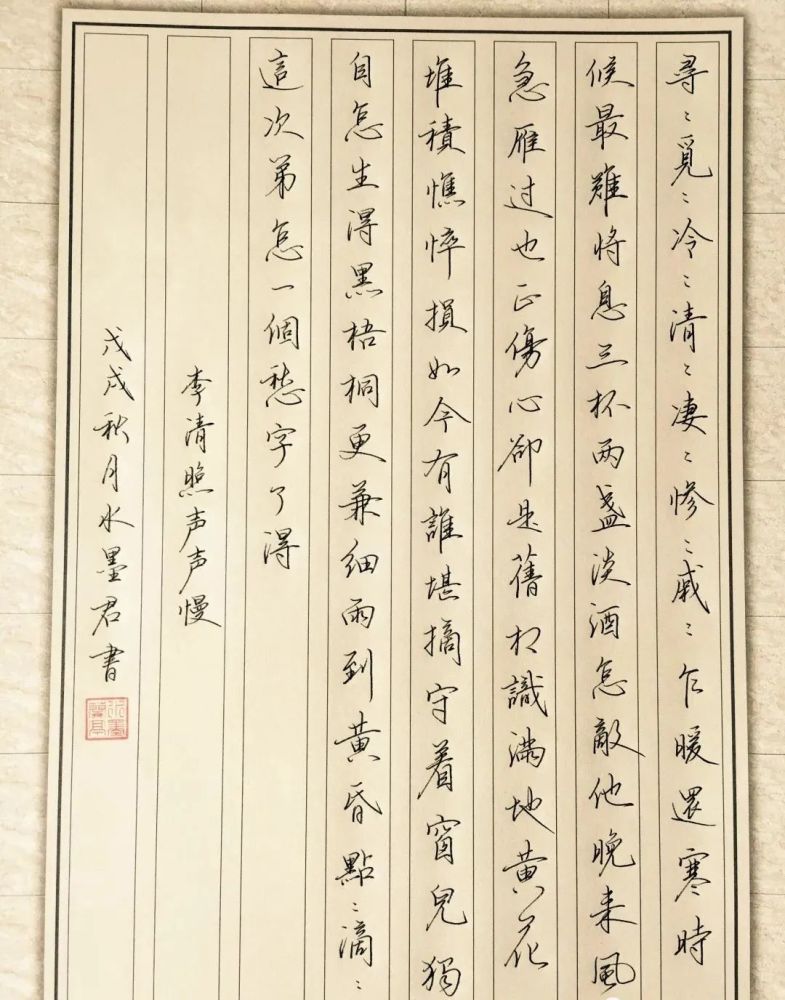 尋〻覓〻冷〻清〻凄〻惨〻戚〻乍暖還寒時
候最難将息三杯两盏淡酒怎敵他晚来風
急雁过也正傷心卻是舊相識满地黄花
堆積憔悴損如今有誰堪摘守着窗兒獨
自怎生得黑梧桐更兼細雨到黄昏點〻滴〻
這次第怎一個愁字了得
李清照声声慢
戊戌秋月水墨君書